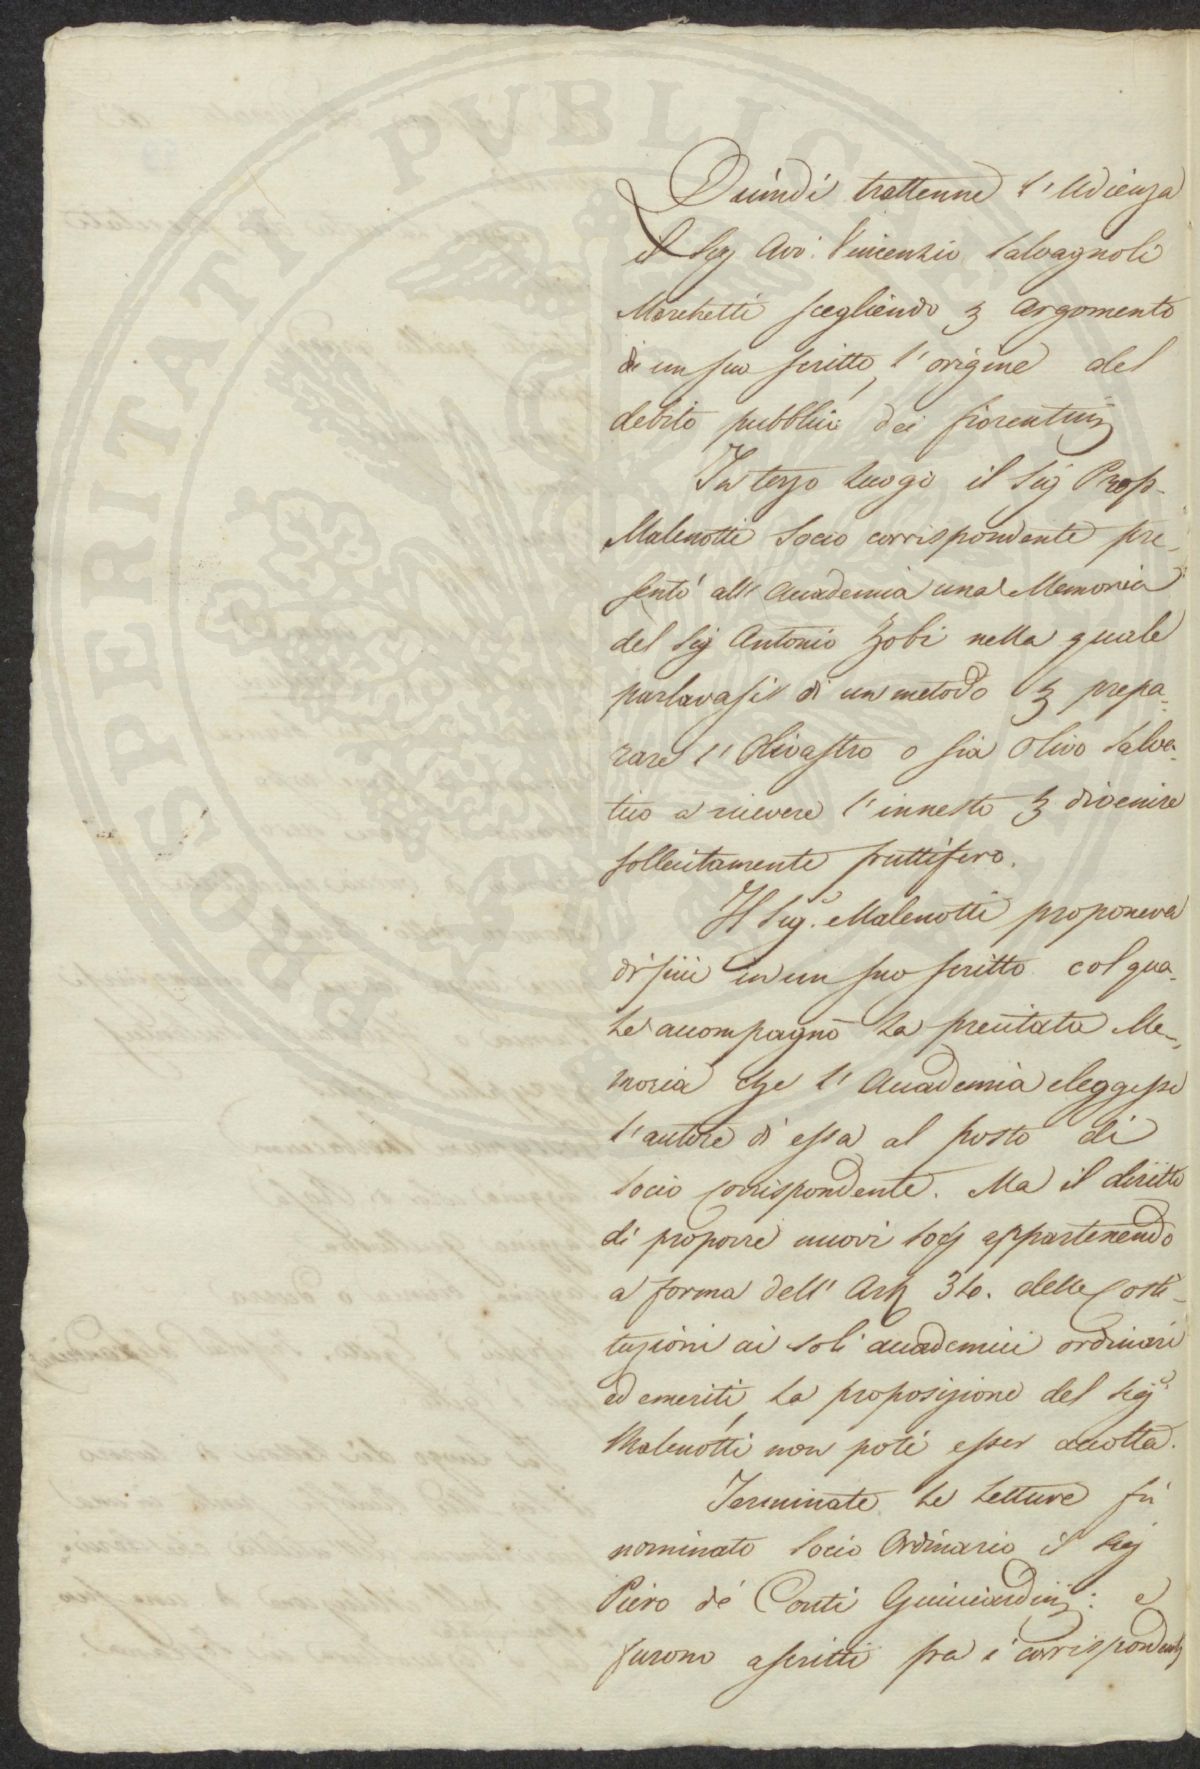 PROSPERITATI PUBLICAE
Quindi trattenne l'Udienza
il Sig Avv. Vincenzio Salvagnoli
Marchetti scegliendo ꝫ argomento
di un suo scritto, l'origine del
debito pubblico dei fiorentini
In terzo luogo il Sig Prop.
Malenotti Socio corrispondente pre-
sentò all'Accademia una Memoria
del Sig Antonio Zobi nella quale
parlavasi di un metodo ꝫ prepa-
rare l'Olivastro o sia Olivo Salva-
tico a ricevere l'innesto ꝫ divenire
sollecitamente fruttifero.
Il Sig.e Malenotti proponeva
di più in un suo scritto col qua-
le accompagnò la precitata Me-
moria che l'Accademia eleggesse
l'autore di essa al posto di
Socio Corrispondente. Ma il diritto
di proporre nuovi Socj appartenendo
a forma dell'Art. 34. delle Costi-
tuzioni ai soli accademici ordinari
ed emeriti, la proposizione del Sig.e
Malenotti non poté esser accolta.
Terminate le Letture fù
nominato Socio Ordinario il Sig
Piero de' Conti Guicciardini: e
furono ascritti fra i corrispondenti